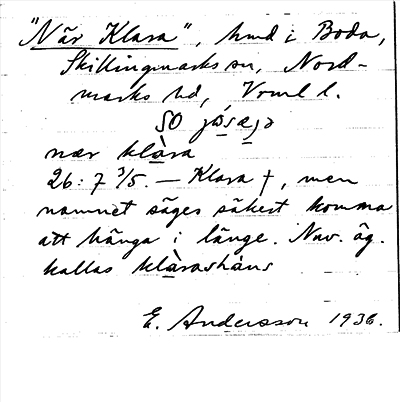 "När Klara", hmd i Boda,
Skillingmarks sn, Nord-
marks hd, Vrml l.
SO jösəjə
nær klàra
26:7 3/5. — Klara †, men
namnet säges säkert komma
att hänga i länge. Nuv. äg.
kallas klàrashåns
E. Andersson 1936.